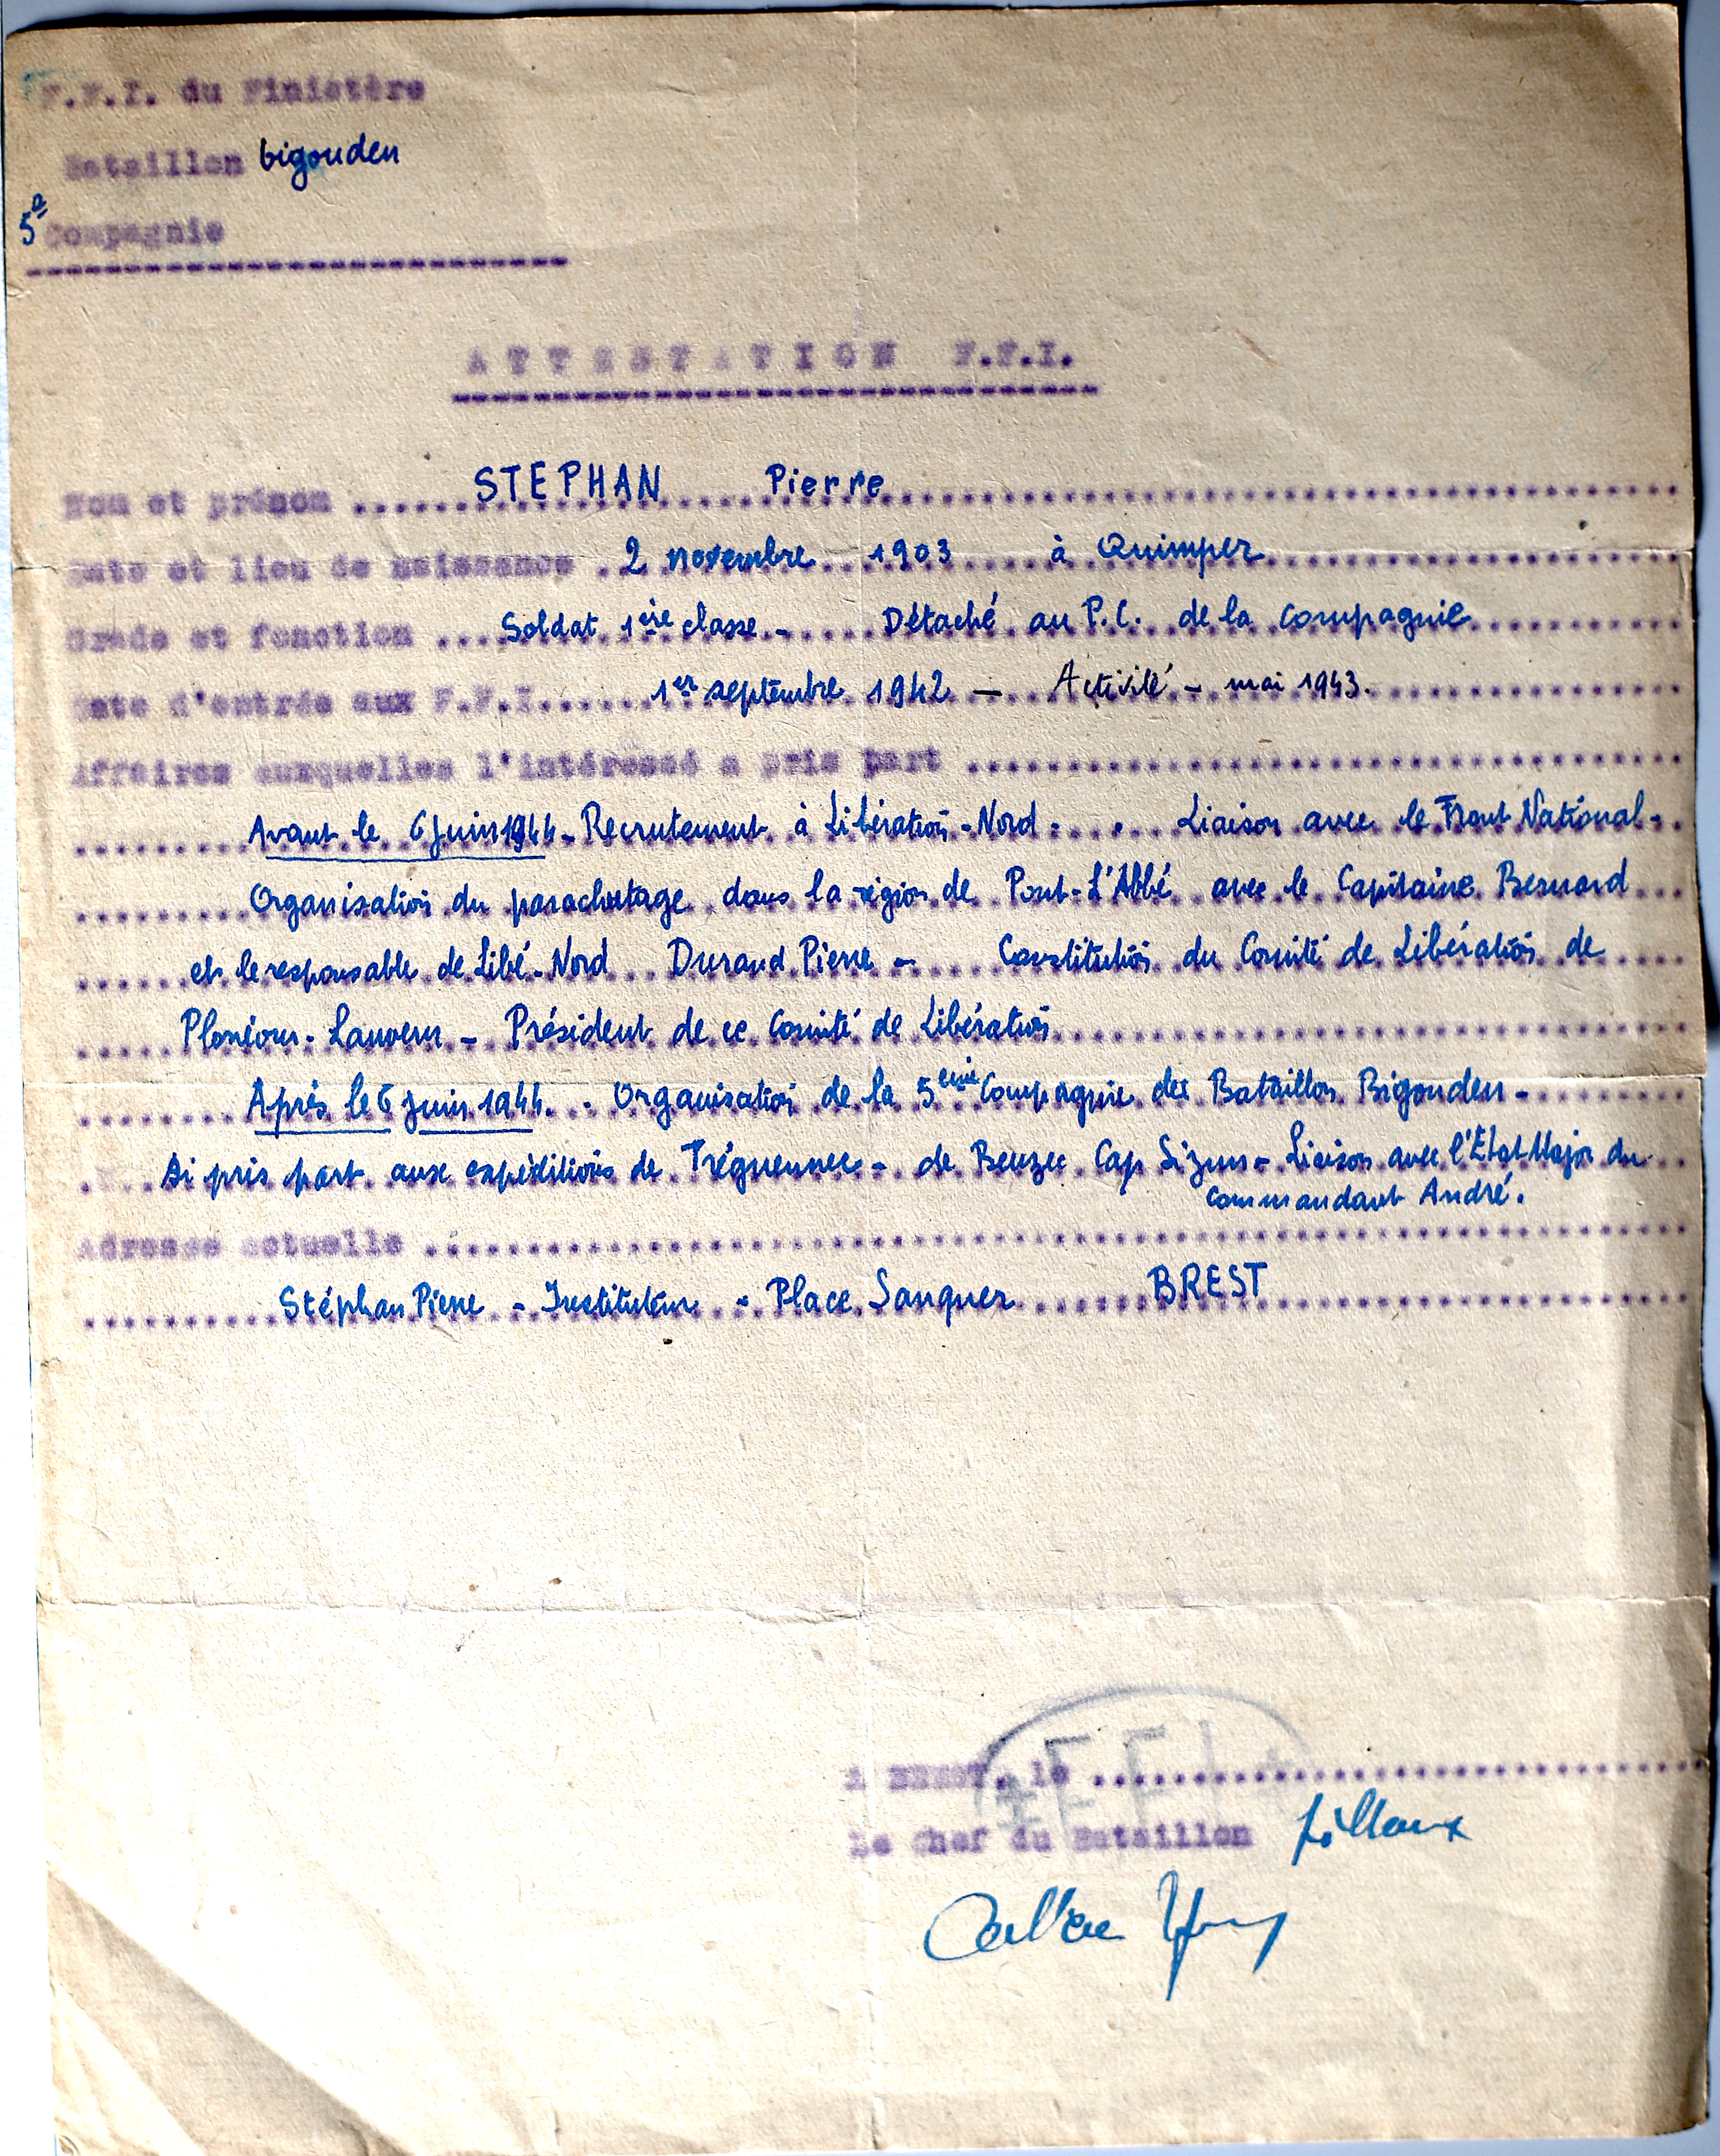 F.F.I. du Finistère
Bataillon bigouden
5e Compagnie
ATTESTATION F.F.I.
Nom et prénom ...... STEPHAN Pierre
Date et lieu de naissance . 2 novembre 1903 à Quimper
Grade et fonction ... Soldat 1ère classe - Détaché au P.C. de la Compagnie
Date d'entrée aux F.F.I...... 1er septembre 1942 - Activité - mai 1943.
Affaires auxquelles l'intéressé a pris part ...
Avant le 6 juin 1944 - Recrutement à Libération-Nord - Liaison avec le Front National -
Organisation du parachutage dans la région de Pont-L'Abbé avec le Capitaine Bernard
et le responsable de Libé-Nord Durand Pierre - Constitution du Comité de Libération de
Plonéour-Lanvern - Président de ce Comité de Libération
Après le 6 juin 1944. - Organisation de la 5ème Compagnie du Bataillon Bigouden -
Ai pris part aux expéditions de Tréguennec - de Beuzec Cap Sizun - Liaison avec l'Etat Major du
Commandant André.
Adresse actuelle ...
Stéphan Pierre - Instituteur - Place Sanquer BREST
FFI
A BREST, le ...
Le Chef du Bataillon